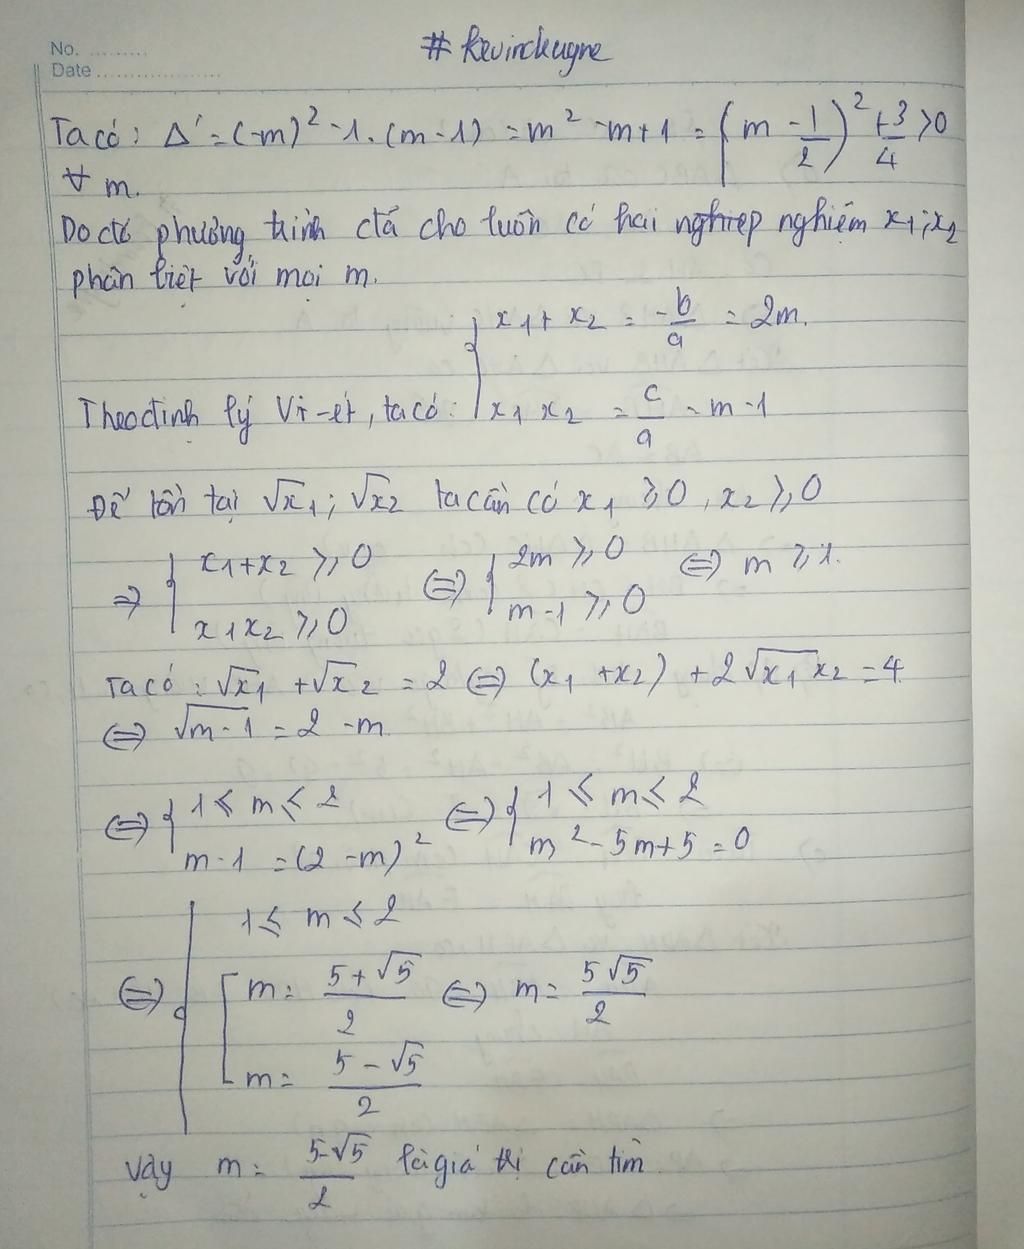 No. ..........
# Kevinckugne
Date ..................
Ta có: Δ' = (-m)² - 1.(m-1) = m² - m + 1 = (m - 1/2)² + 3/4 > 0
∀ m.
Do đó phương trình đã cho luôn có hai nghiệp nghiệm x₁; x₂
phân biệt với mọi m.
x₁ + x₂ = -b/a = 2m.
Theo định lý Vi-ét, ta có: { x₁ x₂ = c/a = m-1
Để tồn tại √x₁; √x₂ ta cần có x₁ ⩾ 0, x₂ ⩾ 0
⇒ { x₁+x₂ ⩾ 0 ⇔ { 2m ⩾ 0 ⇔ m ⩾ 1.
x₁x₂ ⩾ 0 m-1 ⩾ 0
Ta có: √x₁ + √x₂ = 2 ⇔ (x₁ + x₂) + 2√x₁x₂ = 4
⇔ √m-1 = 2 - m
⇔ { 1 ⩽ m ⩽ 2 ⇔ { 1 ⩽ m ⩽ 2
m-1 = (2-m)² m² - 5m + 5 = 0
1 ⩽ m ⩽ 2
⇔ { [ m = 5+√5/2 ⇔ m = 5√5/2
m = 5-√5/2
Vậy m = 5-√5/2 là giá trị cần tìm